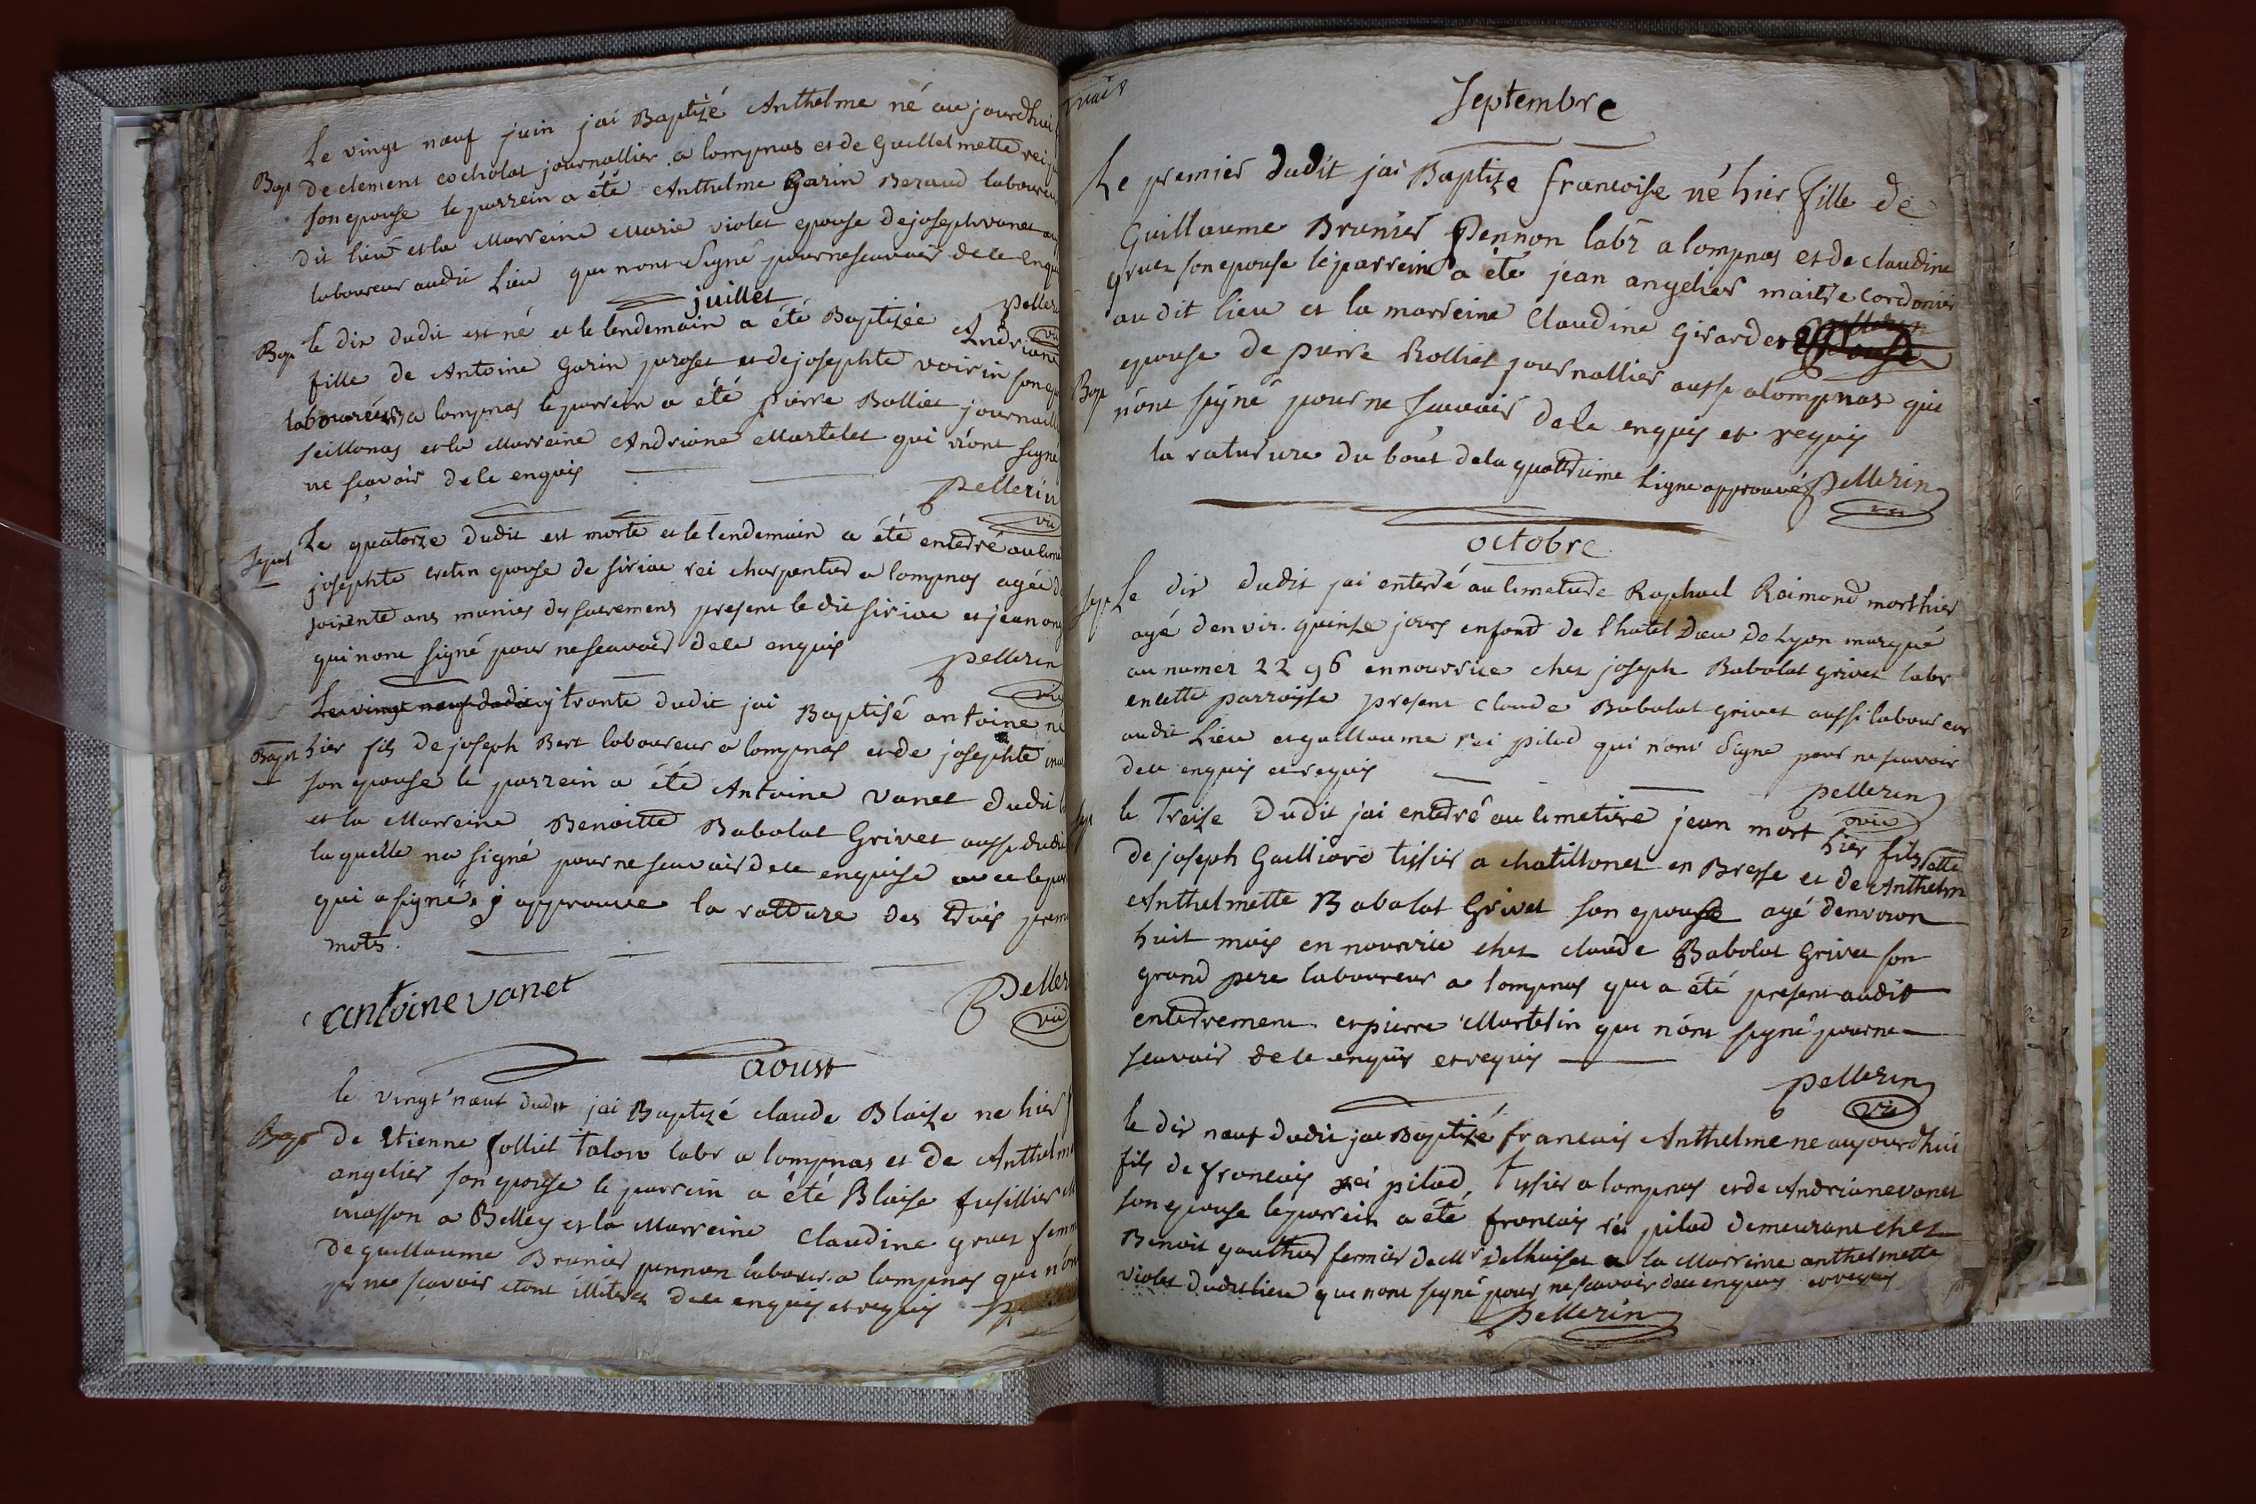 Le vingt nœuf juin jai Baptizé Anthelme né aujourdhui
Bapt de clement cocholat journallier a lompnas et de Guillelmette rei
son epouse le parrein a été Anthelme Garin Beraud laboureu
dit lieu et la Marreine Marie violet epouse de joseph vanet
laboureur audit Lieu qui n'ont Signé pour ne scavoir de ce enqui
juillet
Bap le dix dudit est né et le lendemain a été Baptizée Andriane
fille de Antoine Garin proset et de josephte voirin son
laboureur a lompnas le parrein a été pierre Bolliet journall
seillonas et la Marreine Andriane Martelet qui n'ont signe
ne scavoir de ce enquis
pellerin
vu
Sepul Le quatorze dudit est morte et le lendemain a été enterré au
josephte cretin epouse de siriac rei charpentier a lompnas agée
soixente ans munies des sacremens present le dit siriac et jean
qui nont signé pour ne scavoir de ce enquis
pellerin
Le vingt nœuf dudit trante dudit jai Baptisé antoine né
Bapt hier fils de joseph Bert laboureur a lompnas et de josephte
son epouse le parrein a été Antoine vanet dudit
et la Marreine Benoitte Babolat Grivet aussi dudit
laquelle na signé pour ne scavoir de ce enquise avec le
qui a signé, j approuve la ratture des trois prem
mots.
antoine vanet
Peller
vu
aoust
le vingt nœuf dudit jai Baptizé claude Blaize ne hier
Bapt de Etienne Jolliet talon labr a lompnas et de Anthelm
angelier son epouse le parrein a été Blaise fusillier
masson a Belley et la Marreine Claudine gruet fem
de guillaume Brunier pennon labour. a lompnas qui n'on
pr ne scavoir etant illiterés de ce enquis et requis
Septembre
Le premier dudit jai Baptize francoise né hier fille de
Guillaume Brunier Pennon labr a lompnas et de claudine
gruet son epouse le parrein a été jean angelier maitre cordonier
au dit lieu et la marreine Claudine Girardet
epouse de pierre Rolliet journallier aussi a lompnas qui
Bap n'ont signé pour ne scavoir de ce enquis et requis
la raturure du bout de la quatrieme Ligne approuvé Pellerin
octobre
Sep Le dix dudit jai enterré au cimetiere Raphael Raimond mort hier
agé denvir. quinze jours enfant de l'hotel Dieu de Lyon marqué
au numer 22 96 en nourrice chez joseph Babolat Grivet labr
en cette parroisse present Claude Babolat Grivet aussi laboureur
audit Lieu et guillaume rei pilod qui n'ont signe pour ne scavoir
de ce enquis et requis
pellerin
vu
le Treize dudit jai enterré au cimetiere jean mort hier fils
de joseph Gailliard tissier a chatillonet en Bresse et de Anthelm
Anthelmette Babolat Grivet son epouse agé denviron
huit mois en nourrice chez claude Babolat Grivet son
grand pere laboureur a lompnas qui a été present audit
enterrement et pierre Martelin qui n'ont signé pour ne
scavoir de ce enquis et requis
pellerin
vu
le dix nœuf dudit jai Baptizé francais Anthelme ne aujourdhui
fils de francais rei pilod, tissier a lompnas et de Andriane vanet
son epouse le parrein a été francais rei pilod demeurant chez
Benoit gaulthier fermier de Mr Delhuiset a la Marreine anthelmette
violet dudit lieu qui nont signé pour ne scavoir de ce enquis et requis
Pellerin